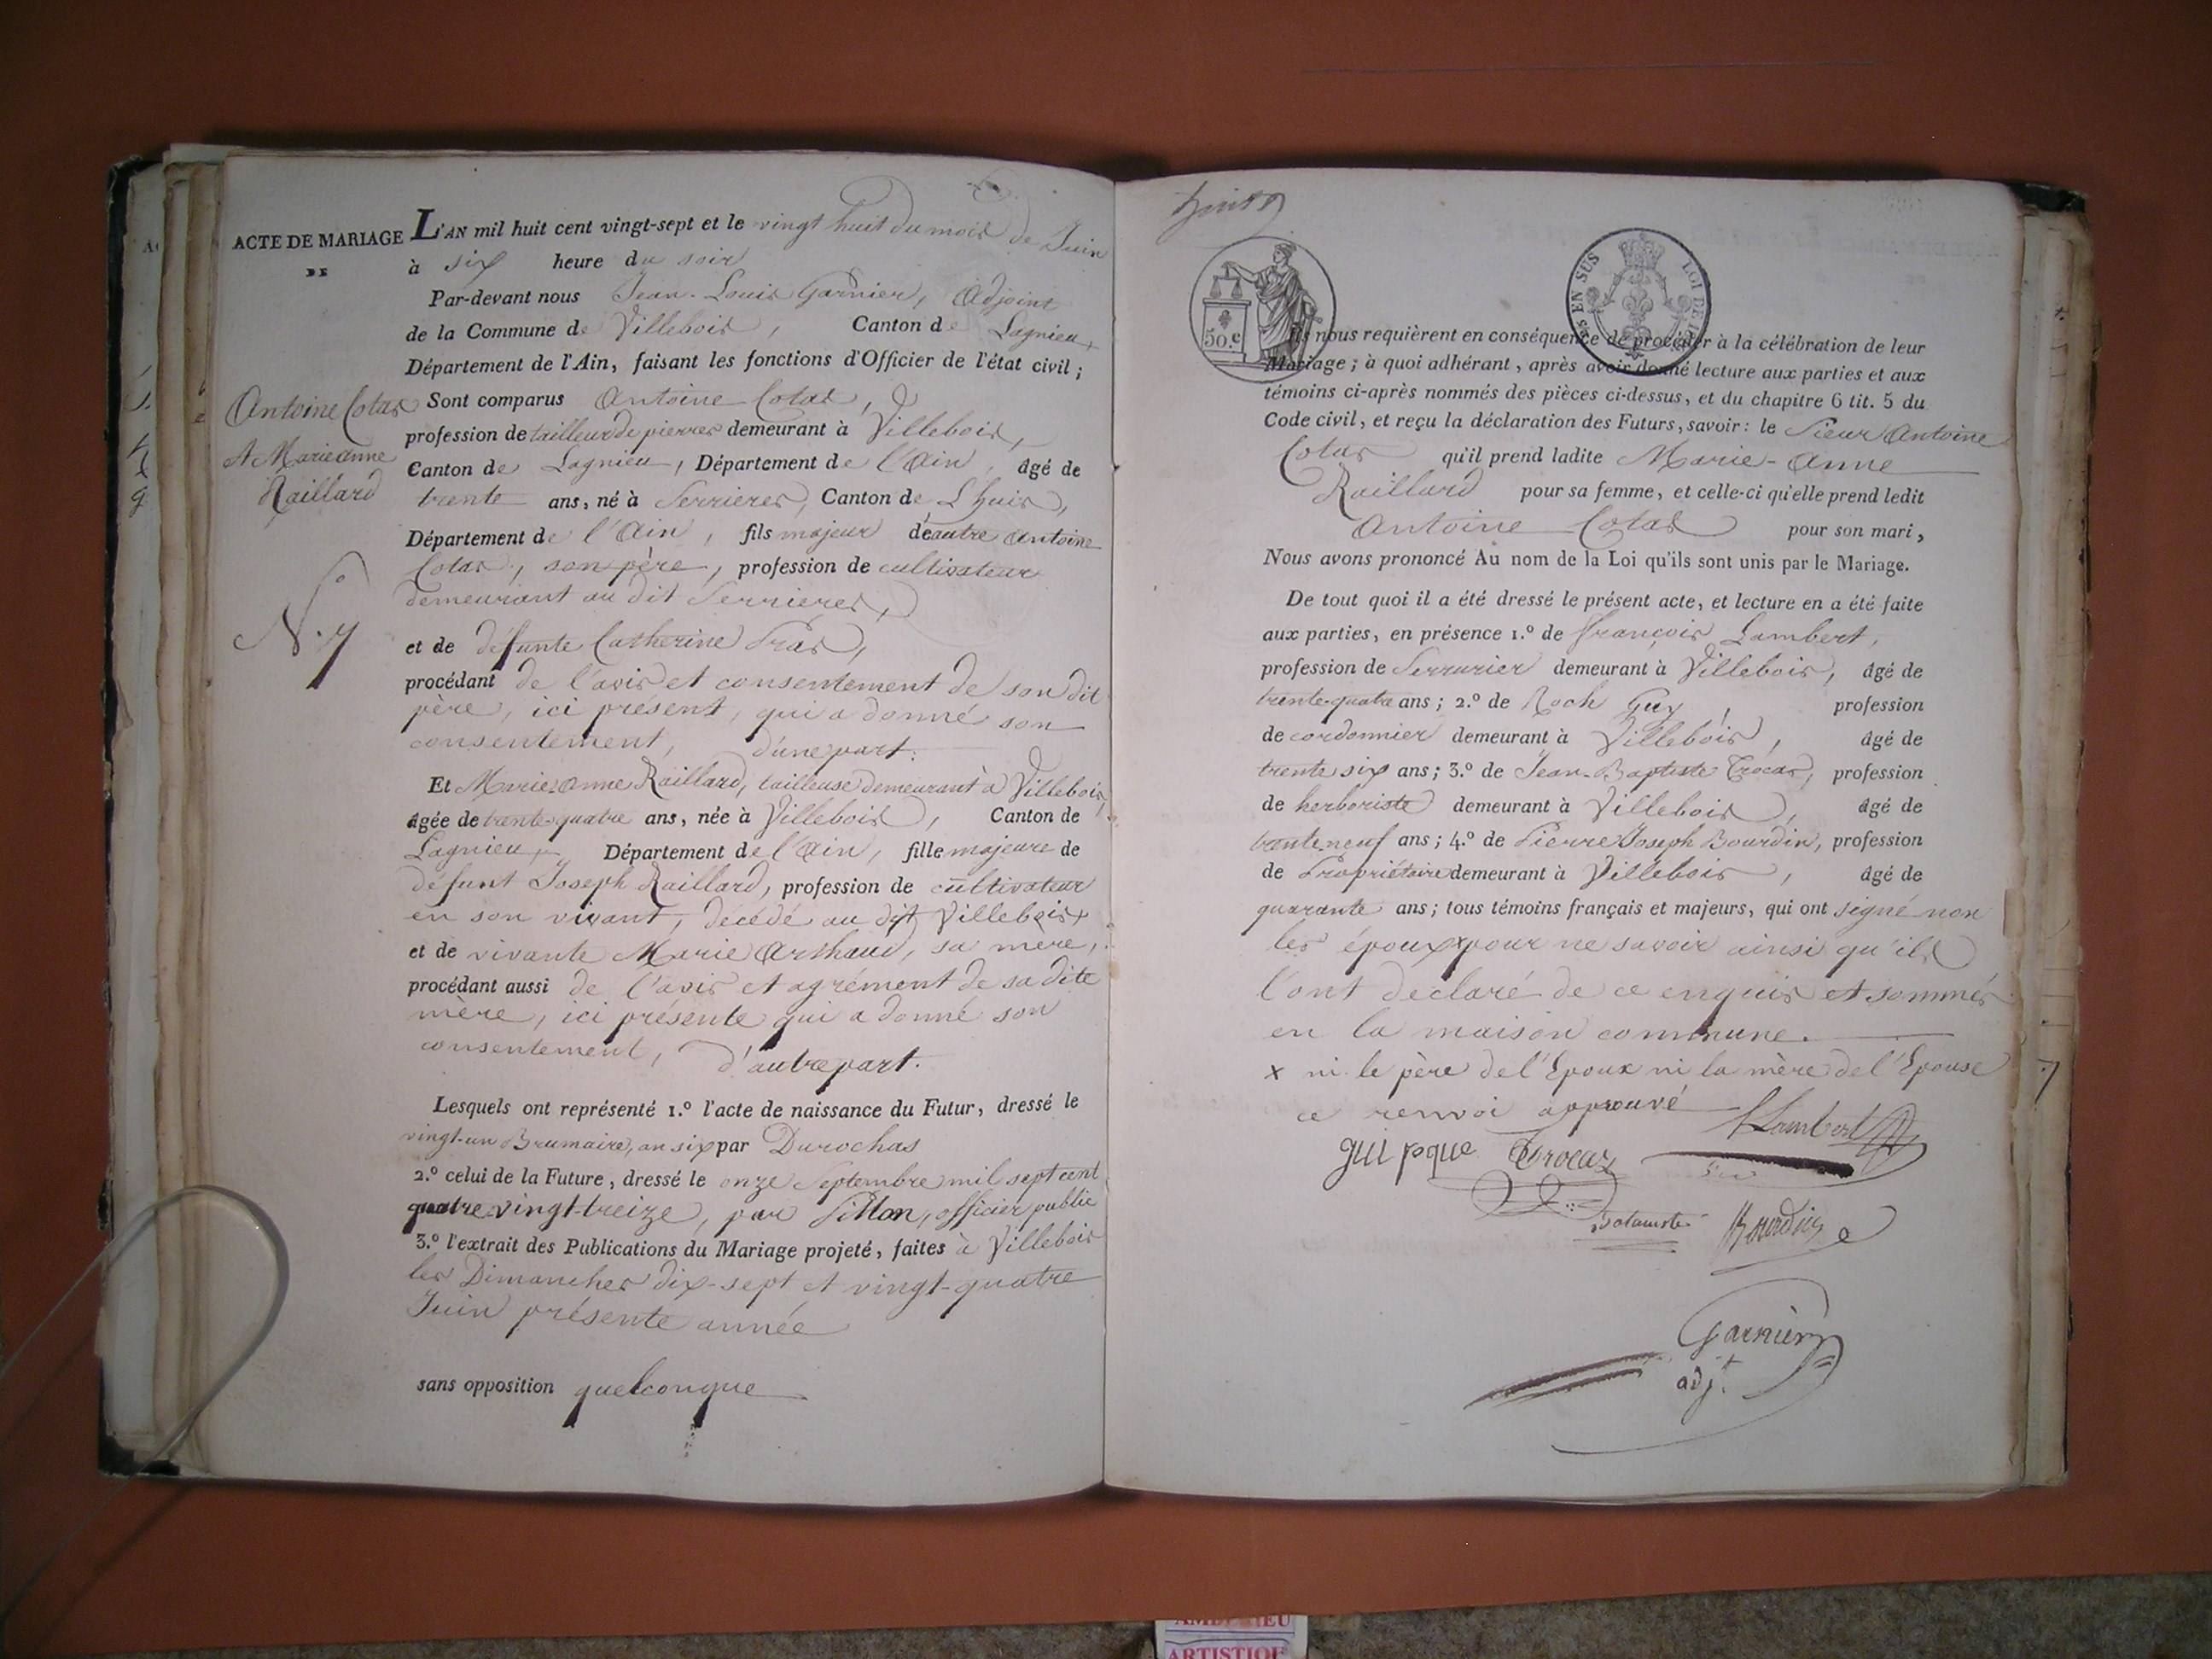 ACTE DE MARIAGE
DE
Antoine Cotas
et Marie anne
Raillard
N.º 7
L'AN mil huit cent vingt-sept et le vingt huit du mois de Juin
à six heure du soir
Par-devant nous Jean-Louis Garnier, Adjoint
de la Commune de Villebois, Canton de Lagnieu,
Département de l'Ain, faisant les fonctions d'Officier de l'état civil;
Sont comparus Antoine Cotas,
profession de tailleur de pierres demeurant à Villebois,
Canton de Lagnieu, Département de l'Ain, âgé de
trente ans, né à Serrieres, Canton de L'huis,
Département de l'Ain, fils majeur de autre Antoine
Cotas, son père, profession de cultivateur
demeurant au dit Serrieres,
et de défunte Catherine Pras,
procédant de l'avis et consentement de son dit
père, ici présent, qui a donné son
consentement, d'une part.
Et Marie anne Raillard, tailleuse demeurant à Villebois,
âgée de trente-quatre ans, née à Villebois, Canton de
Lagnieu, Département de l'Ain, fille majeure de
défunt Joseph Raillard, profession de cultivateur
en son vivant, décédé au dit Villebois
et de vivante Marie Arthaud, sa mère,
procédant aussi de l'avis et agrément de sa dite
mère, ici présente qui a donné son
consentement, d'autre part.
Lesquels ont représenté 1.º l'acte de naissance du Futur, dressé le
vingt-un Brumaire, an six par Durochas
2.º celui de la Future, dressé le onze Septembre mil sept cent
quatre-vingt-treize, par Sitton, officier public
3.º l'extrait des Publications du Mariage projeté, faites à Villebois
les Dimanches dix-sept et vingt-quatre
Juin présente année
sans opposition quelconque
50.c
EN SUS
LOI DE
Ils nous requièrent en conséquence de procéder à la célébration de leur
Mariage; à quoi adhérant, après avoir donné lecture aux parties et aux
témoins ci-après nommés des pièces ci-dessus, et du chapitre 6 tit. 5 du
Code civil, et reçu la déclaration des Futurs, savoir: le Sieur Antoine
Cotas qu'il prend ladite Marie-Anne
Raillard pour sa femme, et celle-ci qu'elle prend ledit
Antoine Cotas pour son mari,
Nous avons prononcé Au nom de la Loi qu'ils sont unis par le Mariage.
De tout quoi il a été dressé le présent acte, et lecture en a été faite
aux parties, en présence 1.º de françois Lambert,
profession de Serrurier demeurant à Villebois, âgé de
trente-quatre ans; 2.º de Roch Guy, profession
de cordonnier demeurant à Villebois, âgé de
trente six ans; 3.º de Jean-Baptiste Trocas, profession
de herboriste demeurant à Villebois, âgé de
trente neuf ans; 4.º de Pierre Joseph Bourdin, profession
de Propriétaire demeurant à Villebois, âgé de
quarante ans; tous témoins français et majeurs, qui ont signé non
les époux x pour ne savoir ainsi qu'ils
l'ont déclaré de ce enquis et sommés
en la maison commune.
x ni le père de l'Epoux ni la mère de l'Epouse
ce renvoi approuvé
Lambert
gui
Trocaz
Botaniste
Bourdin
Garnier
adj.t
7
ARTISTIQUE